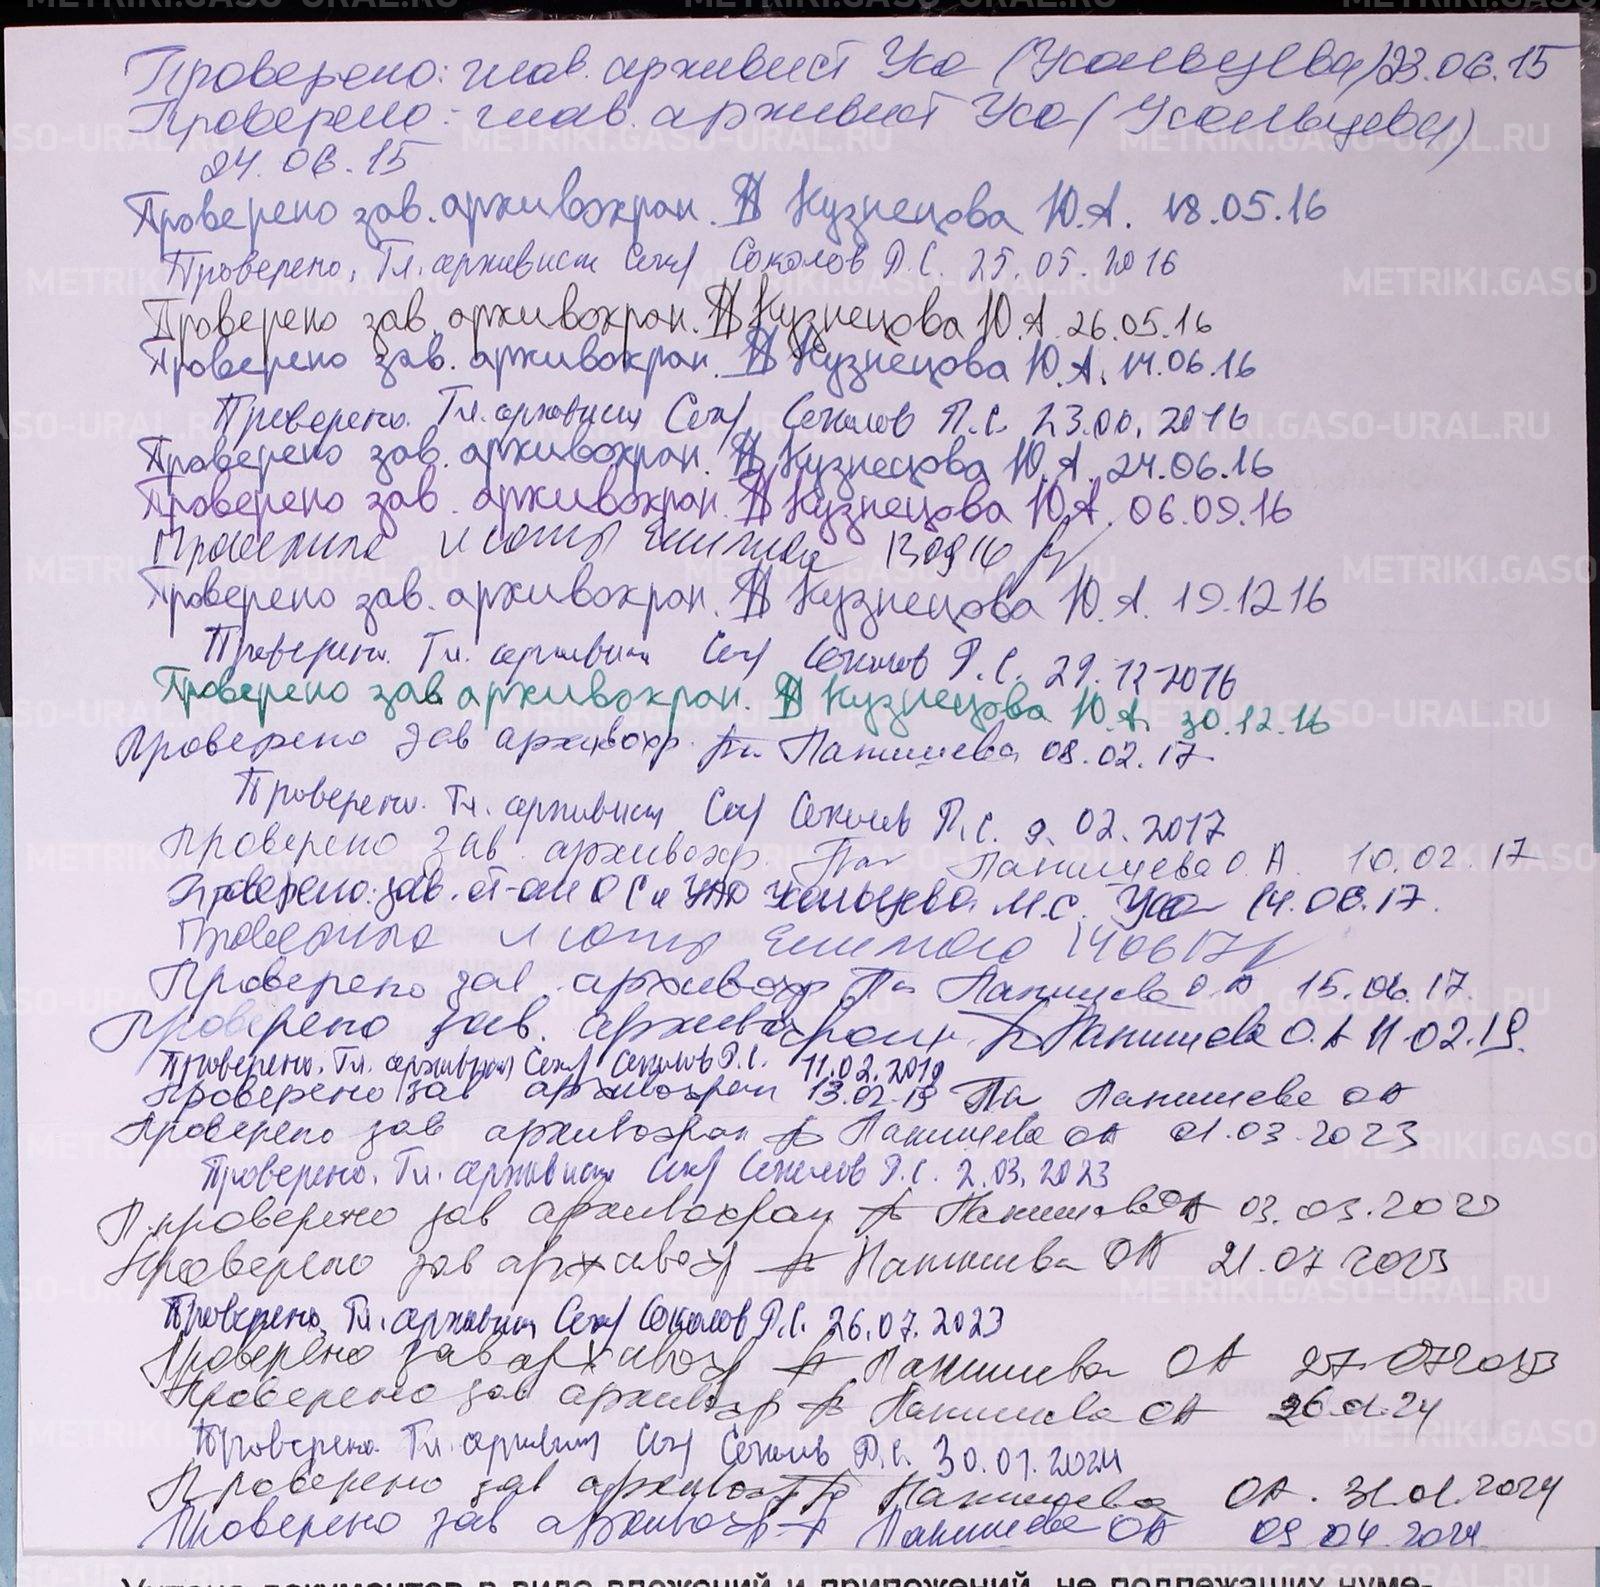 Проверено: глав. архивист Усо (Усольцева) 23.06.15
Проверено: глав. архивист Усо (Усольцева)
24.06.15
Проверено зав. архивохран. Кузнецова Ю.А. 18.05.16
Проверено. Гл. архивист Сок Соколов Р.С. 25.05.2016
Проверено зав. архивохран. Кузнецова Ю.А. 26.05.16
Проверено зав. архивохран. Кузнецова Ю.А. 14.06.16
Проверено. Гл. архивист Сок Соколов Р.С. 23.06.2016
Проверено зав. архивохран. Кузнецова Ю.А. 24.06.16
Проверено зав. архивохран. Кузнецова Ю.А. 06.09.16
130916
Проверено зав. архивохран. Кузнецова Ю.А. 19.12.16
Проверено. Гл. архивист Сок Соколов Р.С. 29.12.2016
Проверено зав архивохран. Кузнецова Ю.А. 30.12.16
Проверено зав архивохр. Панишева 08.02.17
Проверено. Гл. архивист Сок Соколов Р.С. 9.02.2017
Проверено зав архивохр. Пан Панишева О.А. 10.02.17
Проверено: зав. от-ом ОС и УАД Усольцева М.С. Усо 14.06.17.
140617
Проверено зав. архивохр Па Панишева О.А 15.06.17.
Проверено зав. архивохран. Панишева О.А 11.02.19.
Проверено. Гл. архивист Сок Соколов Р.С. 11.02.2019
Проверено зав архивохран 13.02.19 Па Панишева ОА
Проверено зав архивохран Панишева ОА 01.03.2023
Проверено. Гл. архивист Сок Соколов Р.С. 2.03.2023
Проверено зав архивохран Панишева ОА 03.03.2023
Проверено зав архивохр Панишева ОА 21.07 2023
Проверено. Гл. архивист Сок Соколов Р.С. 26.07.2023
Проверено зав архивохр Панишева ОА 27.07 2023
Проверено зав архивохр Панишева ОА 26.01.24
Проверено. Гл. архивист Сок Соколов Р.С. 30.01.2024
Проверено зав архивохр Панишева ОА. 31.01.2024
Проверено зав архивохр Панишева ОА 09 04 2024
документов в виде вложений и приложений, не подлежащих нуме-
METRIKI.GASO-URAL.RU